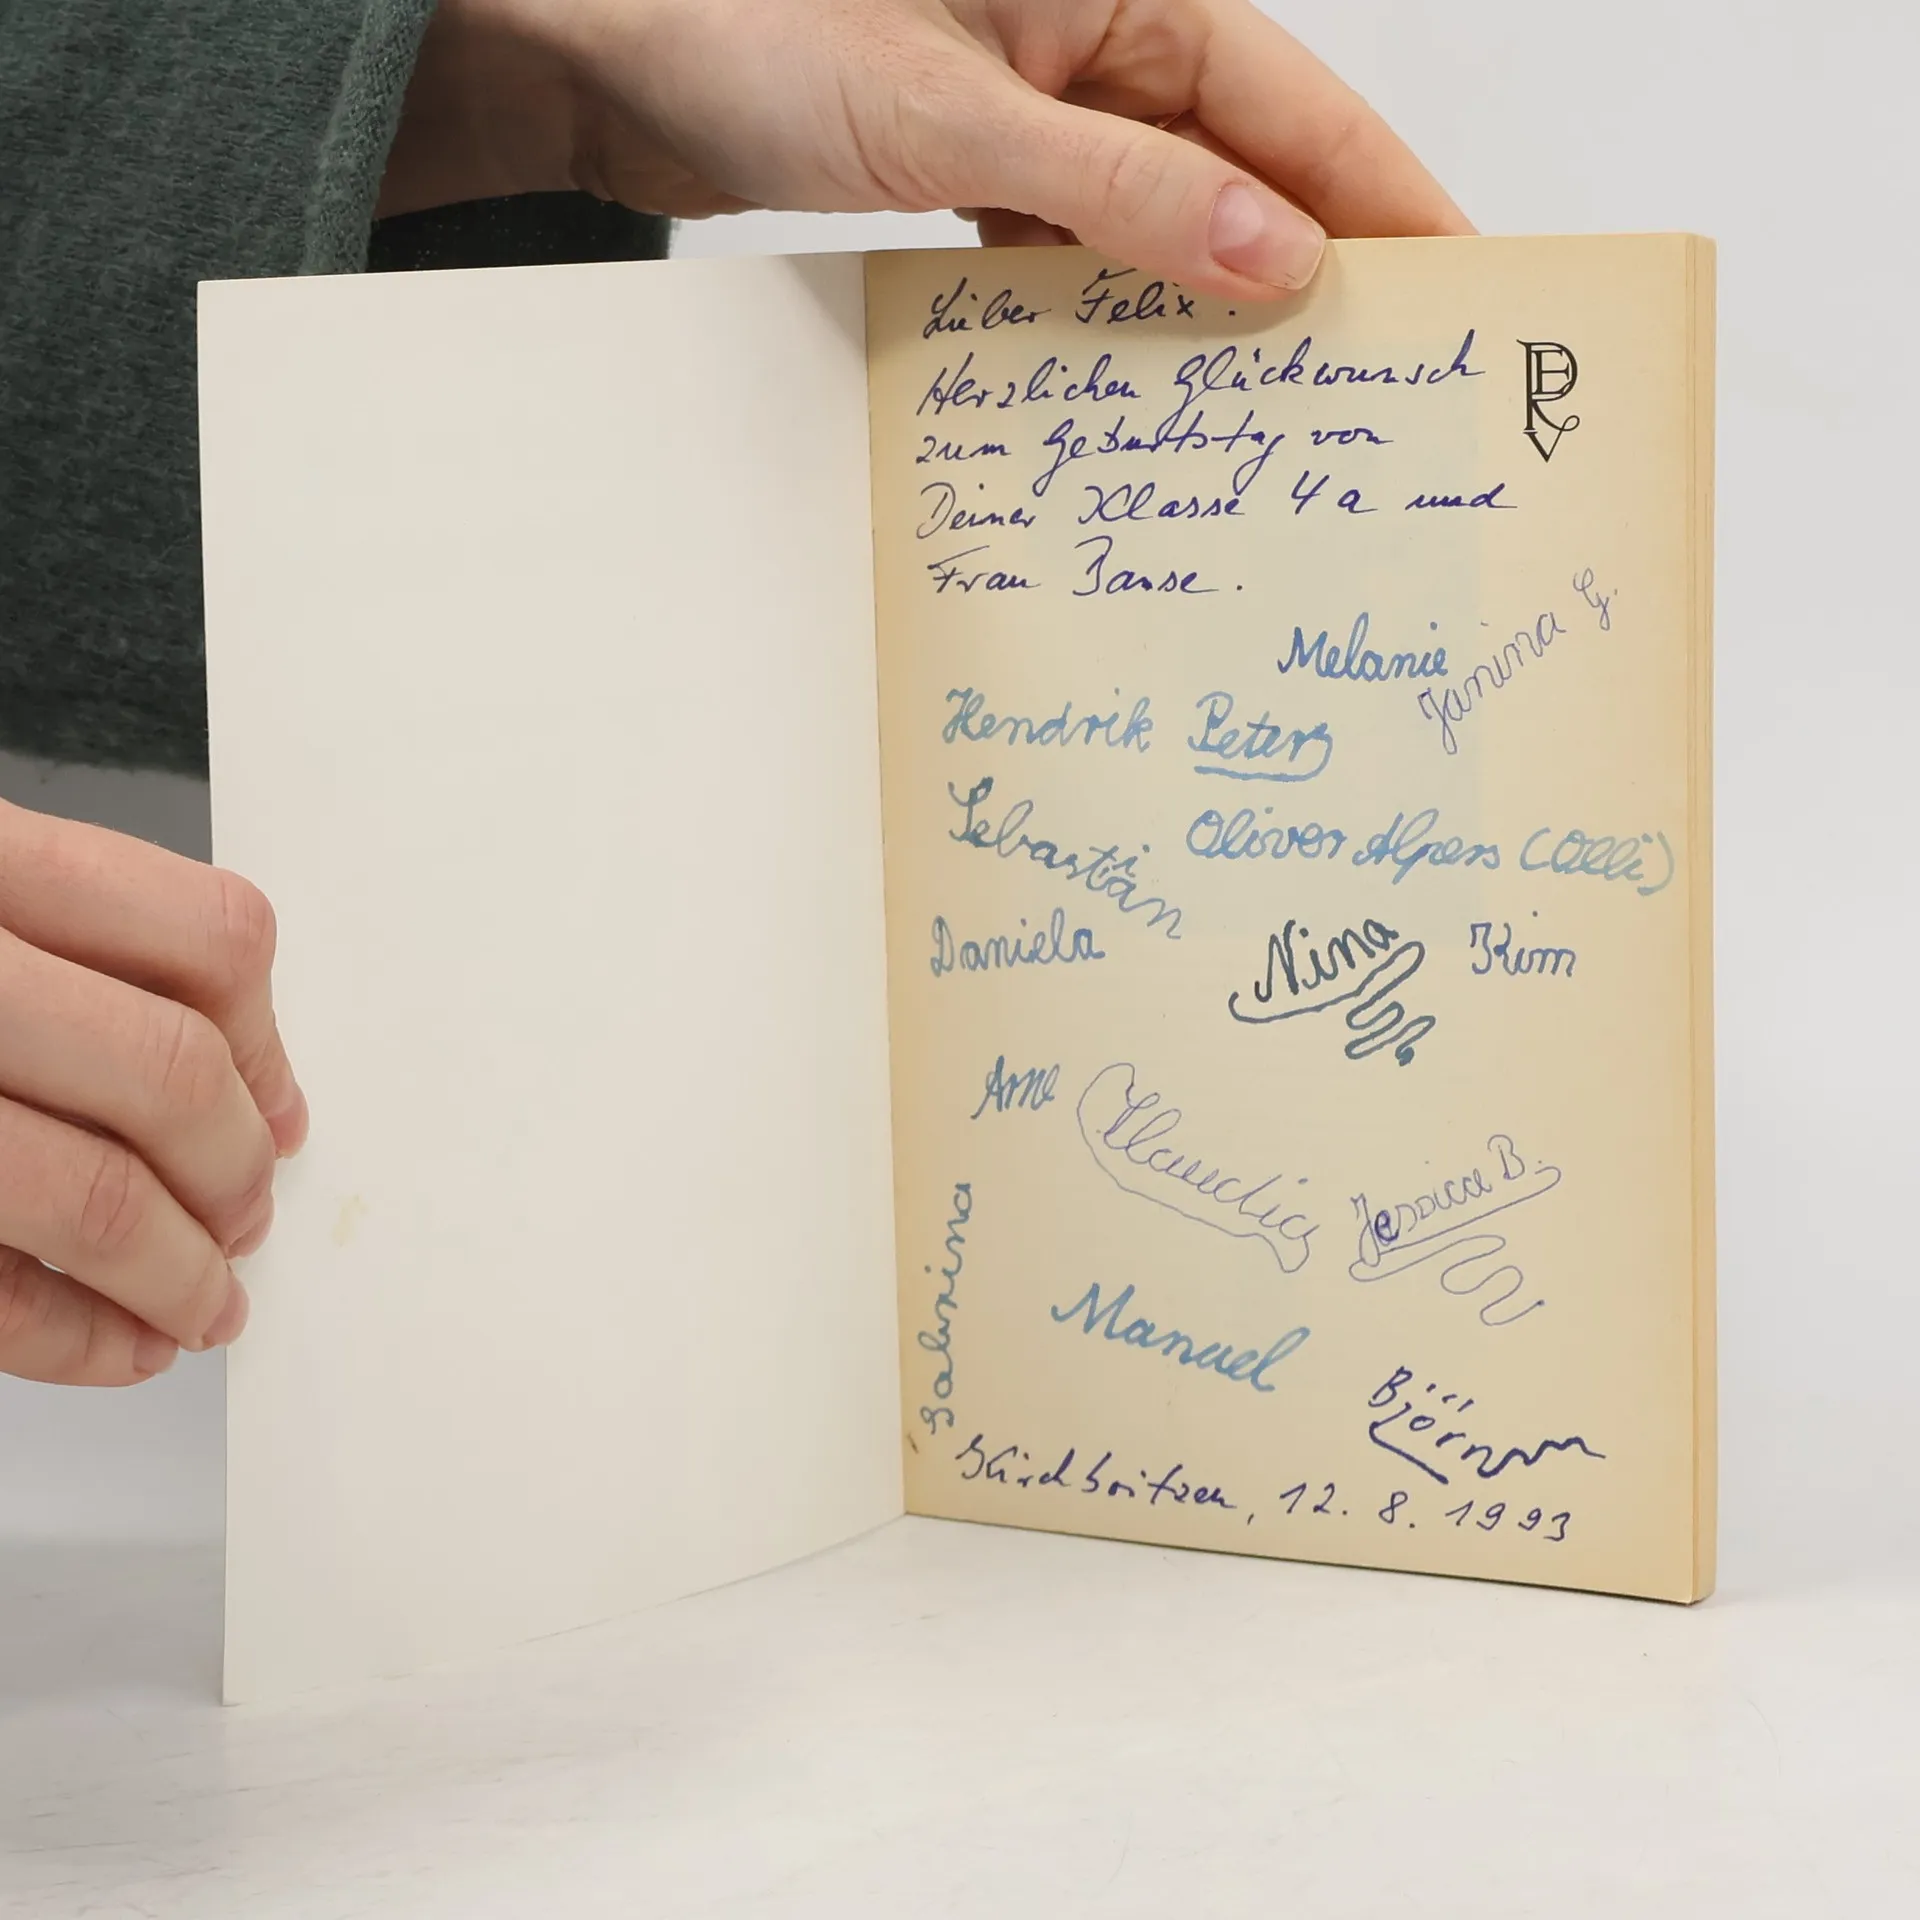 Lieber Felix.
Herzlichen Glückwunsch
zum Geburtstag von
Deiner Klasse 4a und
Frau Banse.
Melanie
Janina G.
Hendrik Peters
Sebastian
Oliver Alpers (Olli)
Daniela
Nina
Kim
Arne
Claudia
Jessica B.
Sabrina
Manuel
Björn
Kirchboitzen, 12.8.1993
ERV